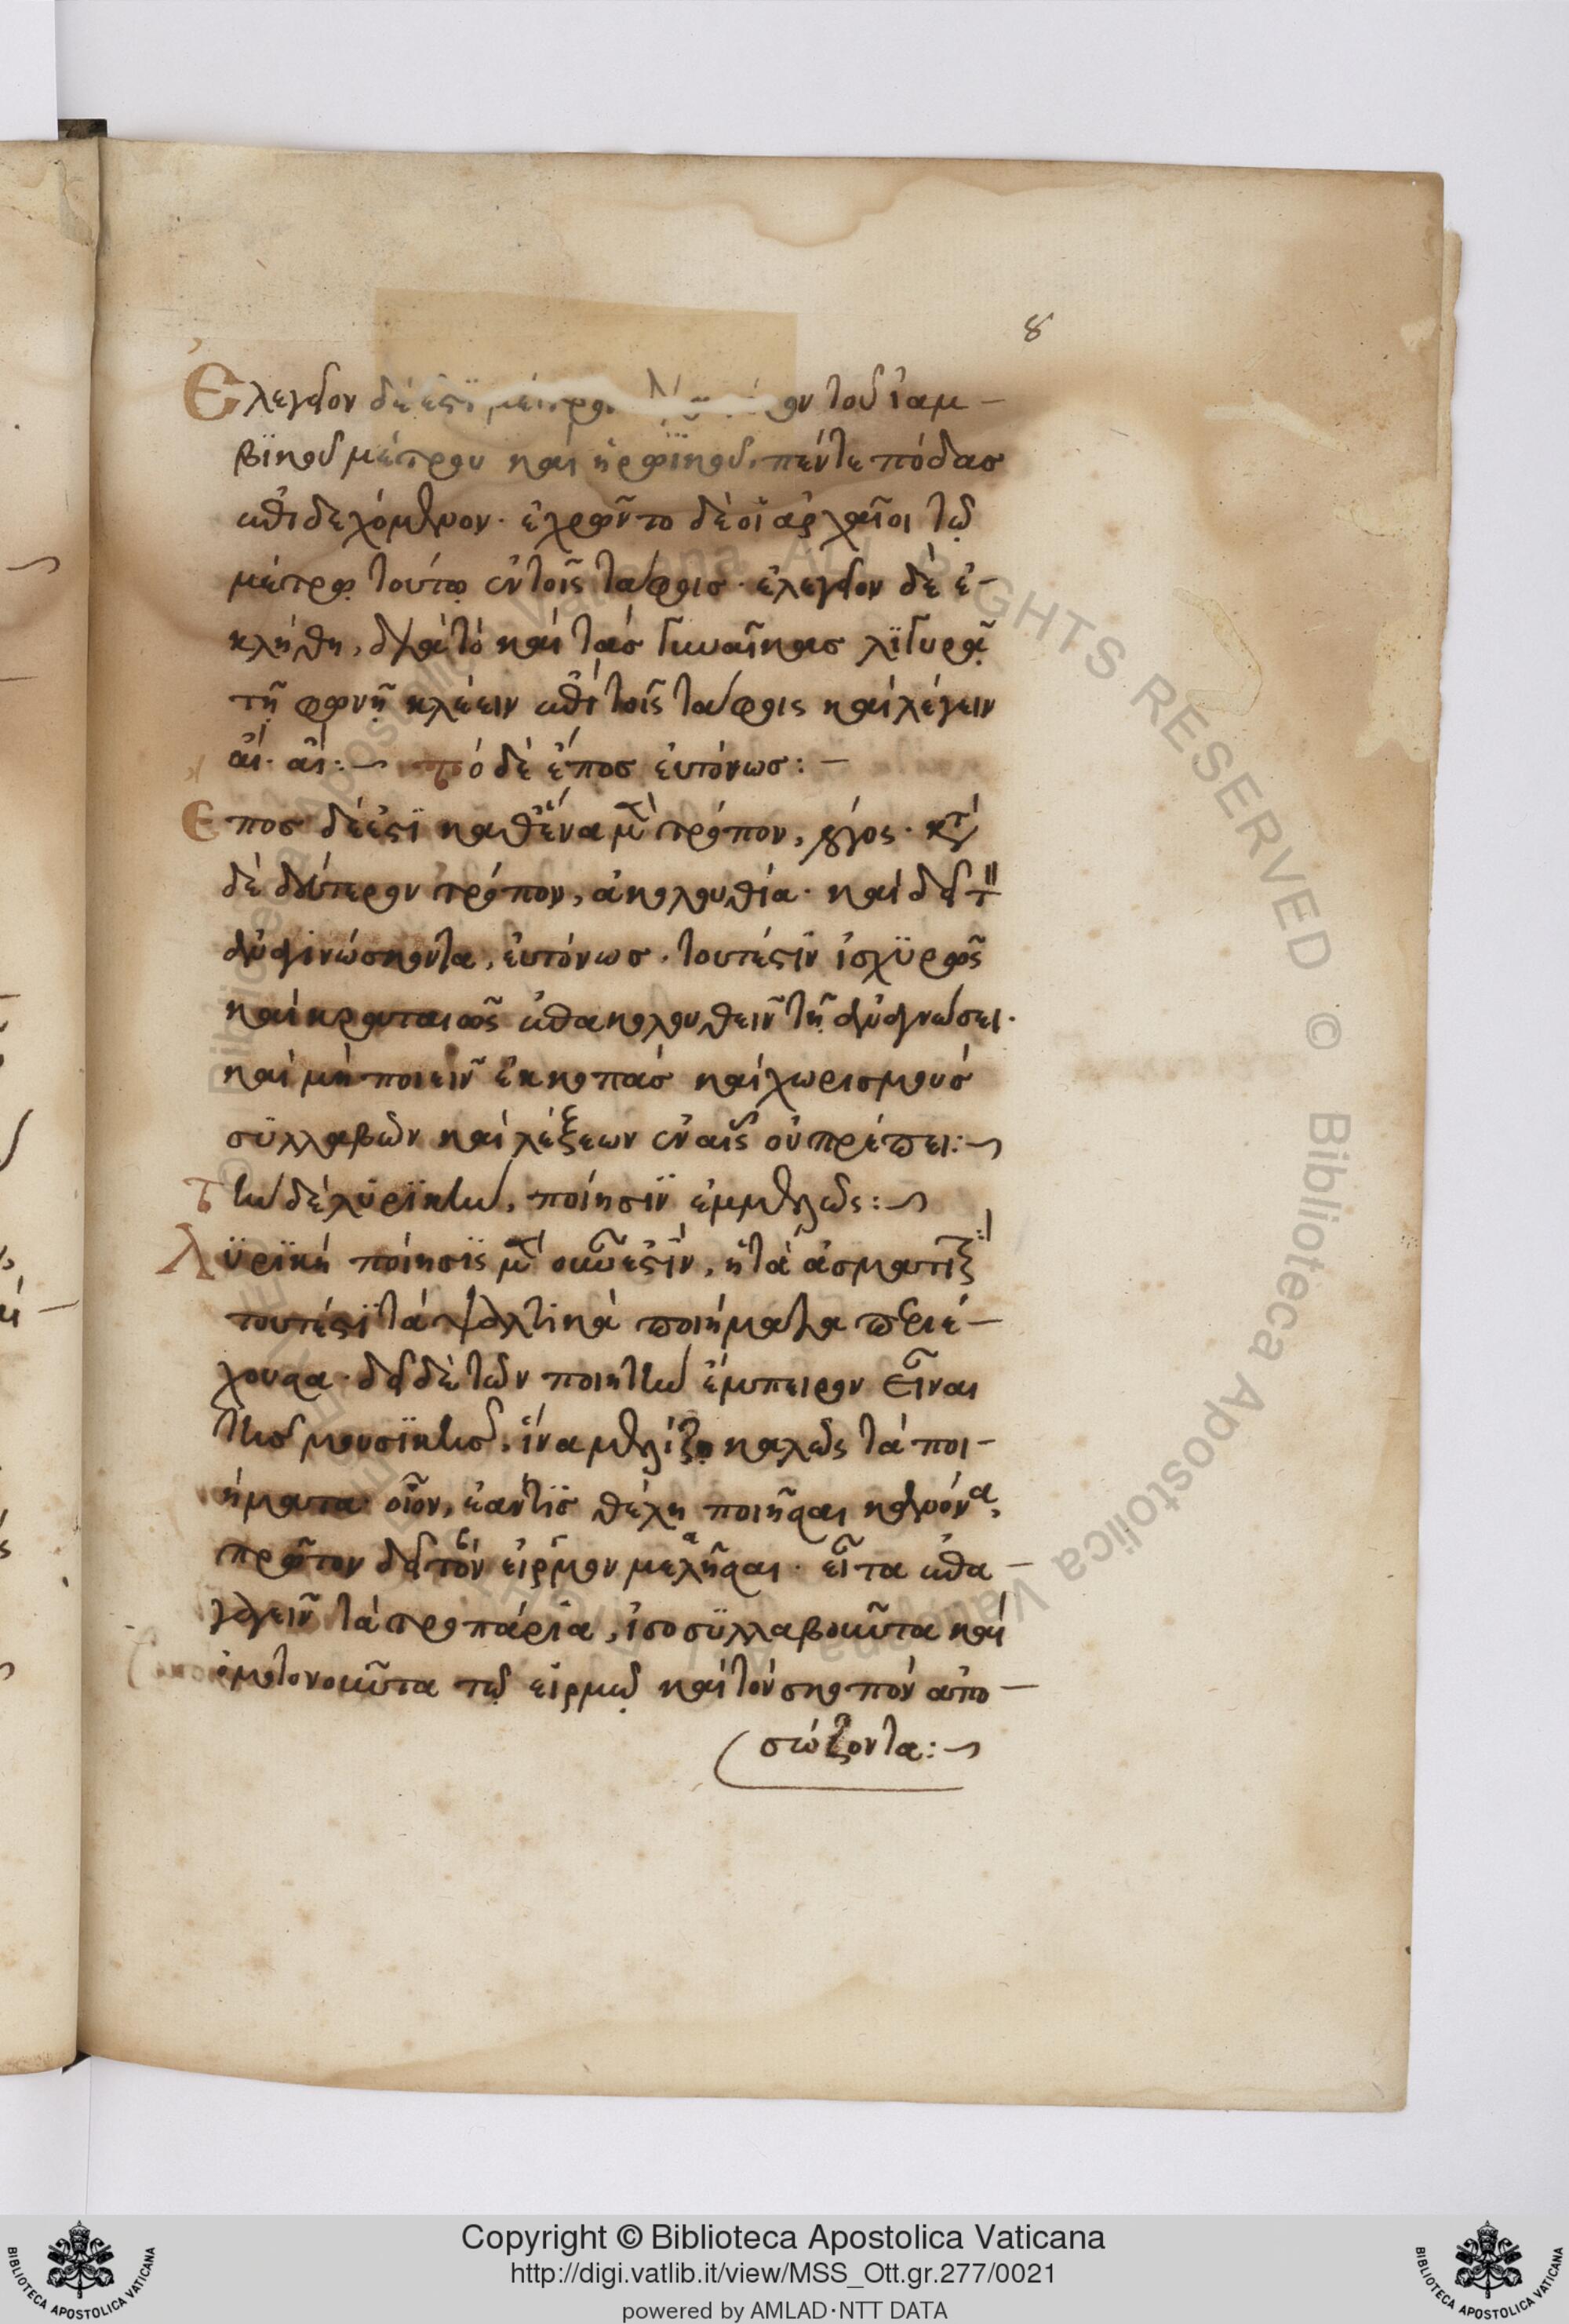 8
Ἐλεγεῖον δέ ἐστι μέτρον τοῦ ἰαμ-
βϊκοῦ μέτρου καὶ ἡρωϊκοῦ, πέντε πόδας
ἐπιδεχόμενον. ἐχρῶντο δὲ οἱ ἀρχαῖοι τῷ
μέτρῳ τούτῳ ἐν τοῖς τάφοις. ἐλεγεῖον δὲ ἐ-
κλήθη, διὰ τὸ καὶ τὰς γυναῖκας λϊγυρᾷ
τῇ φωνῇ κλέειν ἐπὶ τοῖς τάφοις καὶ λέγειν
αἴ. αἴ:~ τὸ δὲ ἔπος εὐτόνως:-
Ἔπος δέ ἐστϊ καθ' ἕνα μὲν τρόπον, λόγος. κατὰ
δὲ δεύτερον τρόπον, ἀκολουθία. καὶ δεῖ τὸν
ἀναγινώσκοντα, εὐτόνως. τουτέστιν ἰσχϋρῶς
καὶ κραταιῶς ἐπακολουθεῖν τῇ ἀναγνώσει.
καὶ μὴ ποιεῖν ἐκκοπὰς καὶ χωρισμοὺς
σϋλλαβῶν καὶ λέξεων ἐν αἷς οὐ πρέπει:~
Τὴν δὲ λϋρϊκὴν, ποίησϊν ἐμμελῶς:~
Λϋρϊκὴ ποίησϊς μὲν οὖν ἐστϊν, ἡ τὰ ἀσματικὰ
τουτέστϊ τὰ ψαλτικὰ ποιήματα περιέ-
χουσα. δεῖ δὲ τὸν ποιητὴν ἔμπειρον εἶναι
τῆς μουσϊκῆς, ἵνα μελίζῃ καλῶς τὰ ποι-
ήματα. οἷον, ἐάν τϊς θέλῃ ποιῆσαι κανόνα,
πρῶτον δεῖ τὸν εἱρμὸν μελῆσαι. εἶτα ἐπα-
γαγεῖν τὰ τροπάρϊα, ἰσοσϋλλαβοῦντα καὶ
ὁμοτονοῦντα τῷ εἱρμῷ καὶ τὸν σκοπὸν ἀπο-
σώζοντα:~
© Biblioteca Apostolica Vaticana ALL RIGHTS RESERVED © Biblioteca Apostolica Vaticana
Copyright © Biblioteca Apostolica Vaticana
http://digi.vatlib.it/view/MSS_Ott.gr.277/0021
powered by AMLAD·NTT DATA
BIBLIOTECA APOSTOLICA VATICANA
BIBLIOTECA APOSTOLICA VATICANA